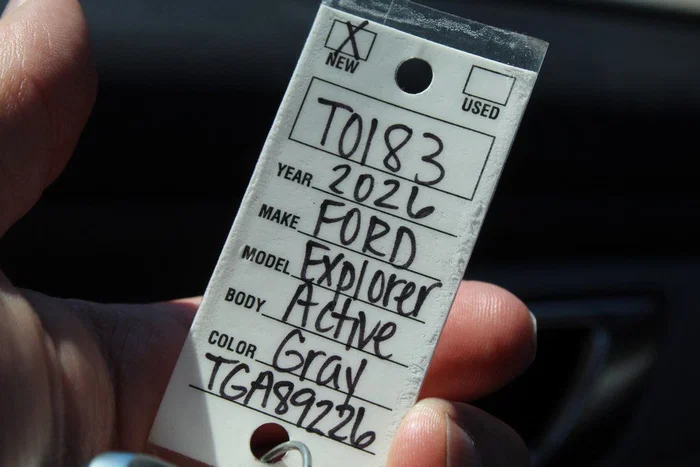 X
NEW USED
T0183
YEAR 2026
MAKE FORD
MODEL Explorer
BODY Active
COLOR Gray
TGA89226